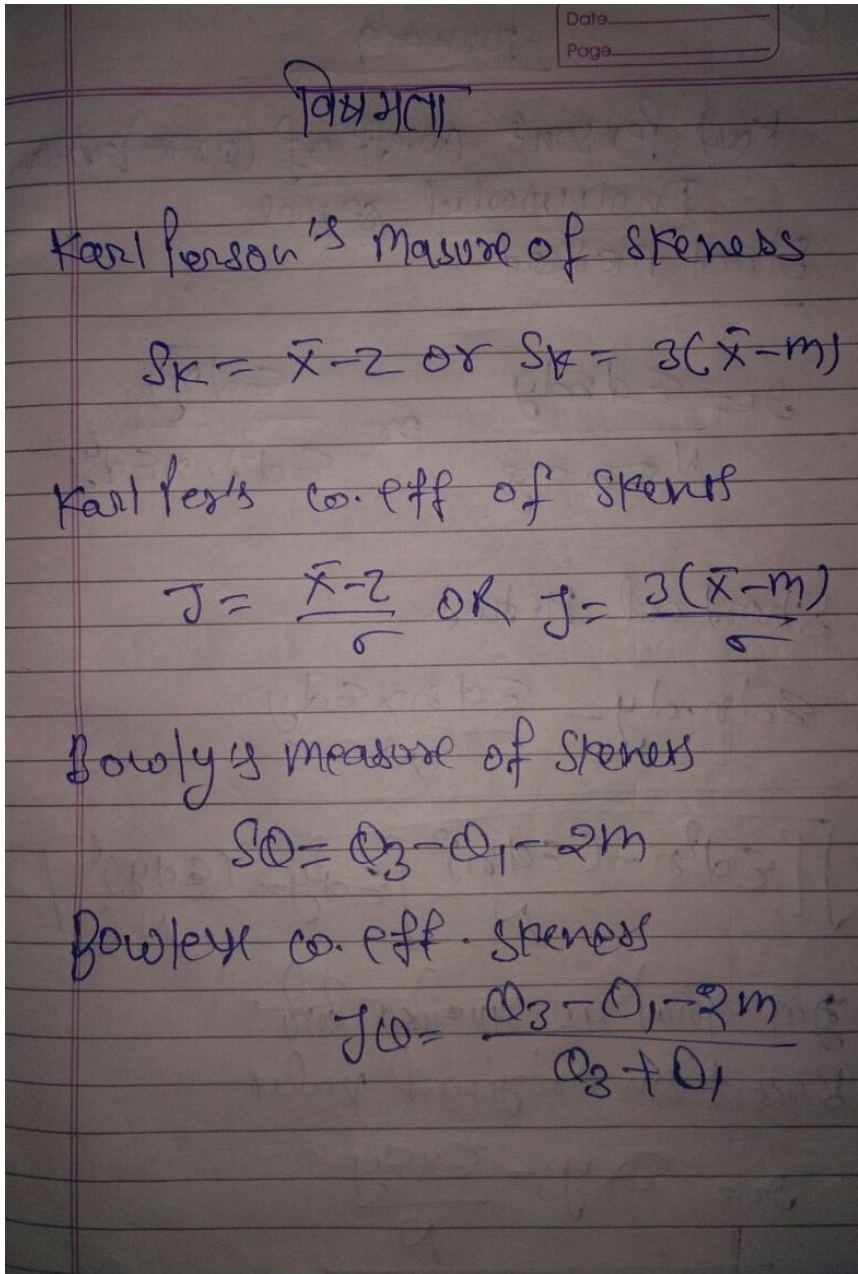 Date
Page
विषमता
Karl Person's Masure of Skeness
SK = x̄-2 or SK = 3(x̄-m)
Karl Per's co. eff of Skenss
J = x̄-2/σ OR J = 3(x̄-m)/σ
Bowly's measure of Skeness
SQ = Q3-Q1-2m
Bowleys co. eff. Skeness
JQ = Q3-Q1-2m/Q3+Q1